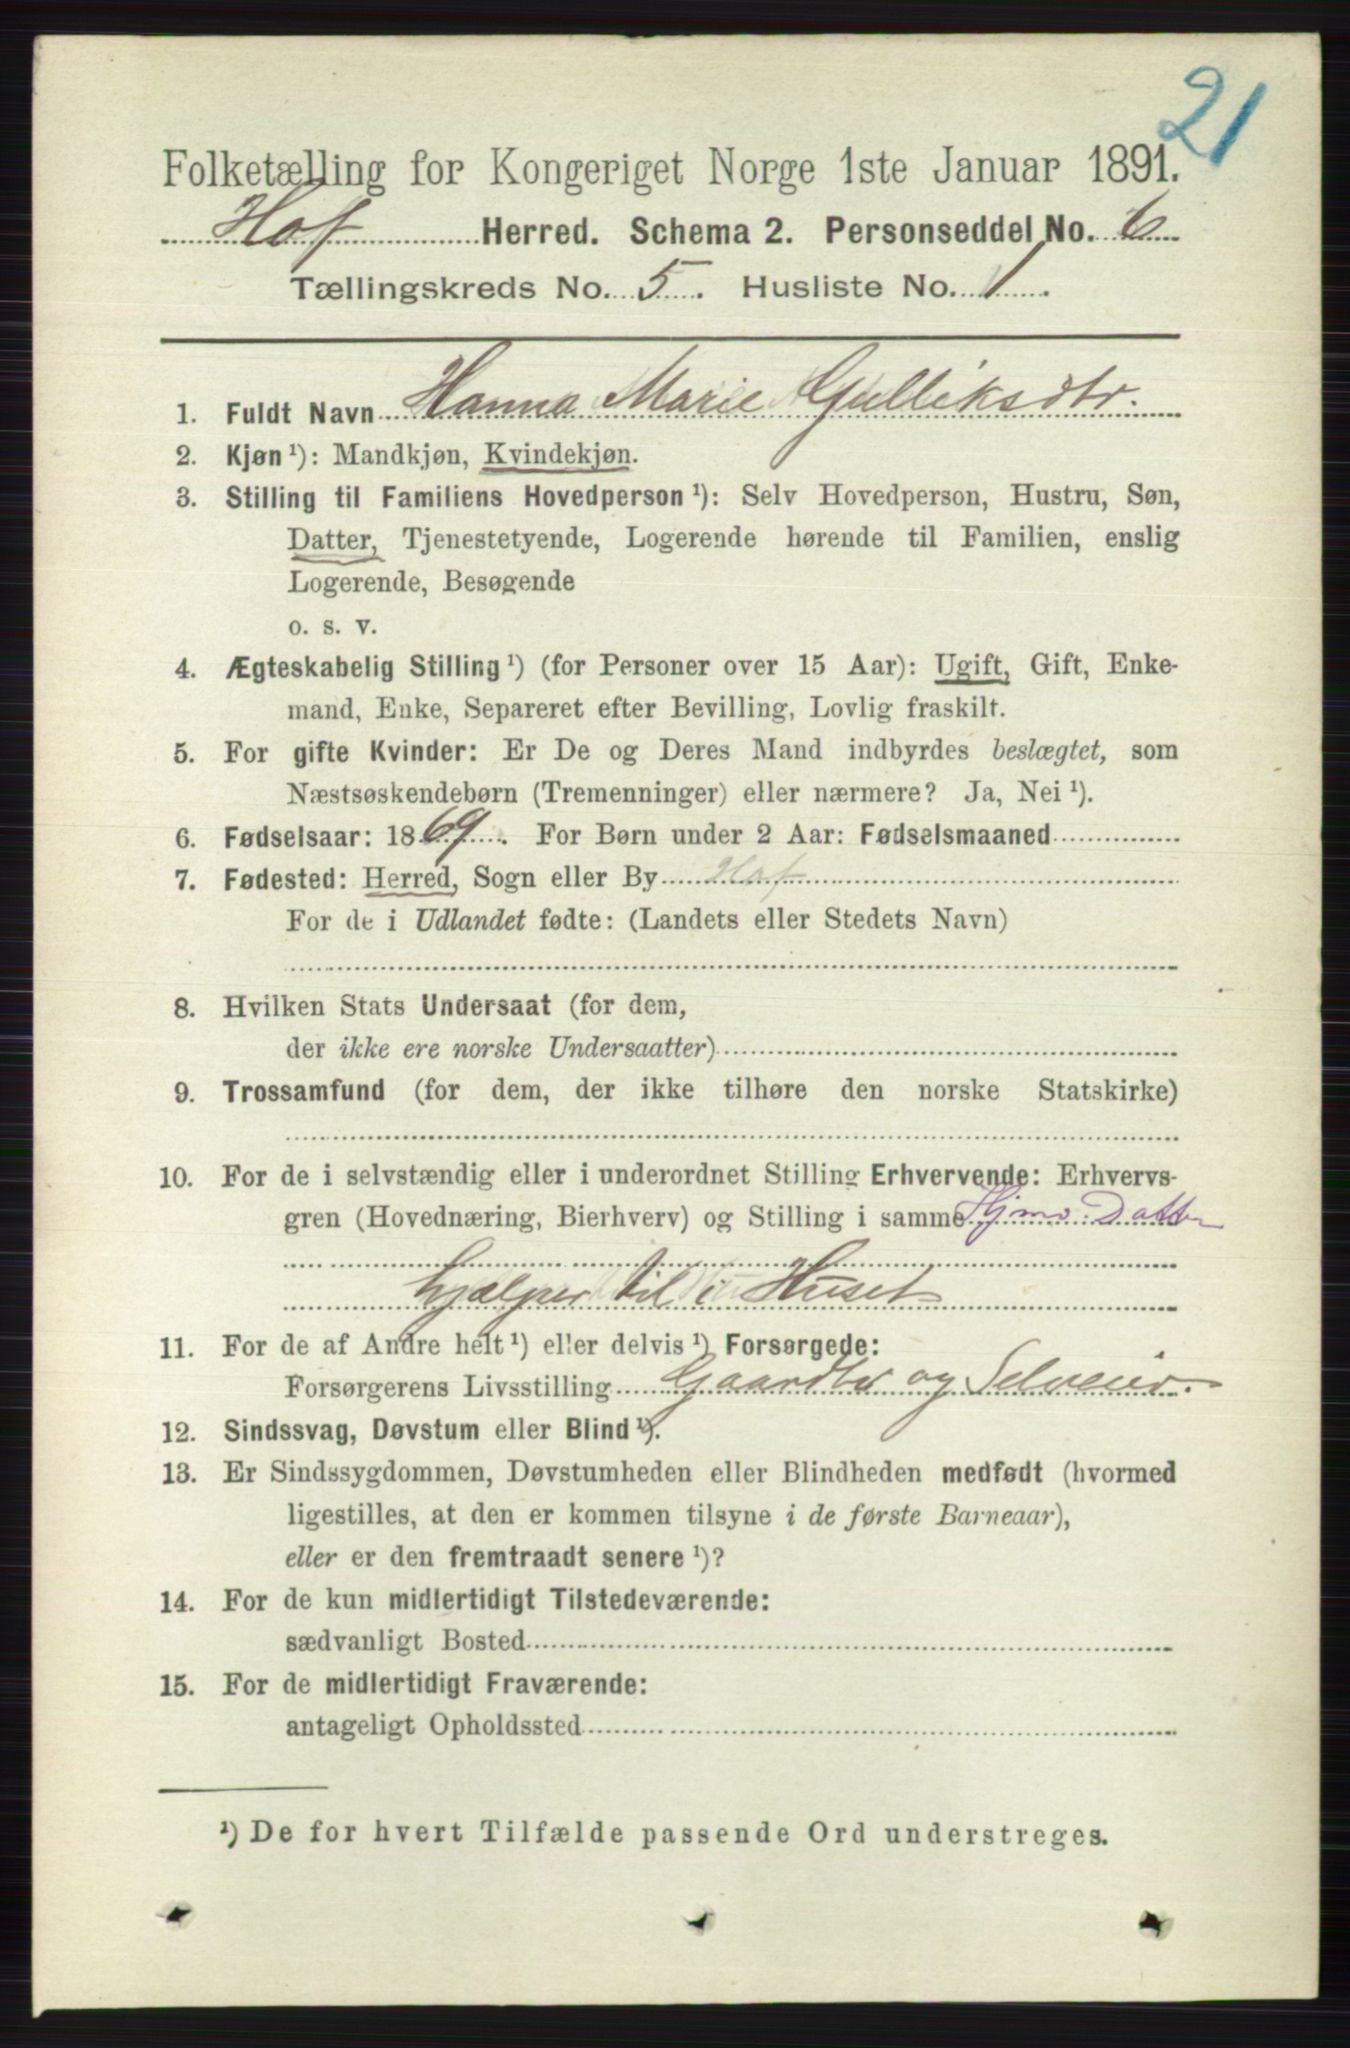 21
Folketælling for Kongeriget Norge 1ste Januar 1891.
Hof Herred. Schema 2. Personseddel No. 6
Tællingskreds No. 5. Husliste No. 1.
1. Fuldt Navn Hanna Marie Gulliksdtr.
2. Kjøn ¹): Mandkjøn, Kvindekjøn.
3. Stilling til Familiens Hovedperson ¹): Selv Hovedperson, Hustru, Søn,
Datter, Tjenestetyende, Logerende hørende til Familien, enslig
Logerende, Besøgende
o. s. v.
4. Ægteskabelig Stilling ¹) (for Personer over 15 Aar): Ugift, Gift, Enke-
mand, Enke, Separeret efter Bevilling, Lovlig fraskilt.
5. For gifte Kvinder: Er De og Deres Mand indbyrdes beslægtet, som
Næstsøskendebørn (Tremenninger) eller nærmere? Ja, Nei ¹).
6. Fødselsaar: 1869. For Børn under 2 Aar: Fødselsmaaned
7. Fødested: Herred, Sogn eller By Hof
For de i Udlandet fødte: (Landets eller Stedets Navn)
8. Hvilken Stats Undersaat (for dem,
der ikke ere norske Undersaatter)
9. Trossamfund (for dem, der ikke tilhøre den norske Statskirke)
10. For de i selvstændig eller i underordnet Stilling Erhvervende: Erhvervs-
gren (Hovednæring, Bierhverv) og Stilling i samme Hjmv. Datter
hjælper til i Huset
11. For de af Andre helt ¹) eller delvis ¹) Forsørgede:
Forsørgerens Livsstilling Gaardbr og Selveier.
12. Sindssvag, Døvstum eller Blind ¹).
13. Er Sindssygdommen, Døvstumheden eller Blindheden medfødt (hvormed
ligestilles, at den er kommen tilsyne i de første Barneaar),
eller er den fremtraadt senere ¹)?
14. For de kun midlertidigt Tilstedeværende:
sædvanligt Bosted
15. For de midlertidigt Fraværende:
antageligt Opholdssted
¹) De for hvert Tilfælde passende Ord understreges.